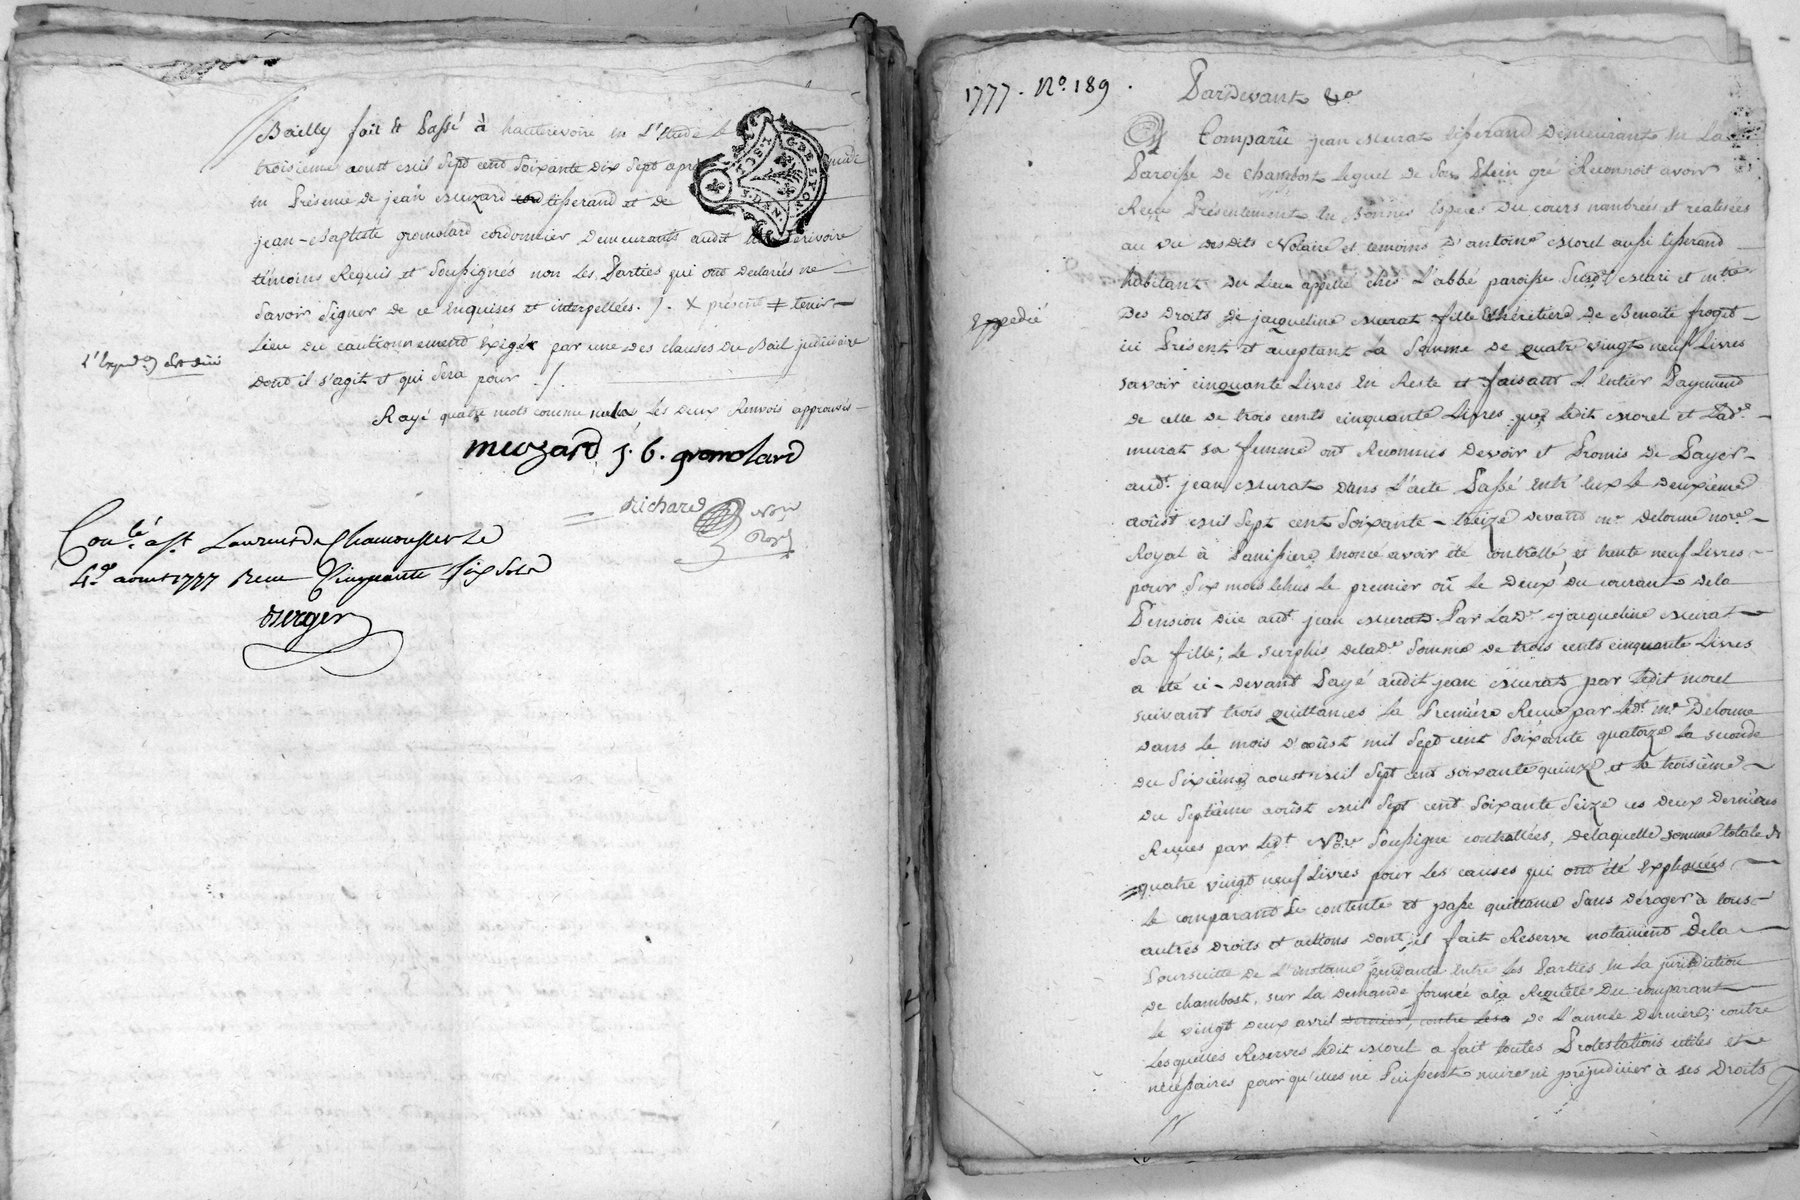 Bailly fait et Passé à hauterivoire en L'Etude le
troisieme aoust mil sept cent soixante dix sept apr
en Présence de jean muzard tisserand et de
jean-Baptiste gromolard cordonnier demeurants audit hauterivoire
témoins Requis et soussignés non les Parties qui ont declarées ne
savoir signer de ce Enquises et interpellées. /. x présent ‡ tenir
Lieu du cautionnement éxigé par une des clauses du Bail judiciaire
L'Exped.on est düe
dont il s'agit et qui sera pour ./.
Rayé quatre mots comme nuls les deux Renvois approuvés
muzard j. b. gromolard
Richard
No.re
Roy.l
Con.lé à St Laurent de Chamousset le
4.e aoust 1777 Reçu Cinquante six sols
Berger
GNE. LYON
1777. N.o 189.
Pardevant &a
Comparü jean Murat tisserand demeurant en La
Paroisse de chambost Lequel de son Plein gré Reconnoit avoir
Reçu Présentement en Bonnes Espèces du cours nombrées et réalisées
au vu desdits Notaire et temoins d'antoine Morel aussi tisserand
habitant du Lieu appellé chés L'abbé paroisse susd.e Mari et m.tre
Expedié
des droits de jacqueline Murat fille & héritiere de Benoite froget
ici Présent et acceptant La somme de quatre vingt neuf Livres
savoir cinquante Livres En Reste et faisant L'entier Payement
de celle de trois cents cinquante Livres que ledit Morel et Lad.e
murat sa femme ont Reconnus devoir et Promis de Payer
aud.t jean Murat dans L'acte Passé entr'eux le deuxième
aoûst mil sept cent soixante-treize devant m.e delorme no.re
Royal à Panissiere Enoncé avoir été controllé et trente neuf Livres
pour six mois Echus le premier oû le deux du courant dela
Pension düe aud.t jean Murat Par Lad.e jacqueline Murat
sa fille; le surplus delad.e somme de trois cents cinquante Livres
a été ci-devant Payé audit jean Murat par ledit morel
suivant trois quittances La Premiére Reçue par led.t m.e Delorme
dans le mois d'aoûst mil sept cent soixante quatorze la seconde
du sixiéme aoust mil sept cent soixante quinze et la troisième
du septième aoûst mil sept cent soixante seize ces deux dernieres
Reçues par led.t No.re soussigné controllées, delaquelle somme totale de
quatre vingt neuf Livres pour les causes qui ont été expliquées
le comparant se contente et passe quittance sans déroger à tous
autres droits et actions dont il fait Reserve notament dela
Poursuitte de L'instance pendante entre les Parties en La jurisdiction
de chambost, sur La demande formée à la Requête du comparant
le vingt deux avril dernier, contre lesd de L'année derniere; contre
lesquelles Reserves ledit Morel a fait toutes Protestations utiles et
nécessaires pour qu'elles ne Puissent nuire ni préjudicier à ses droits